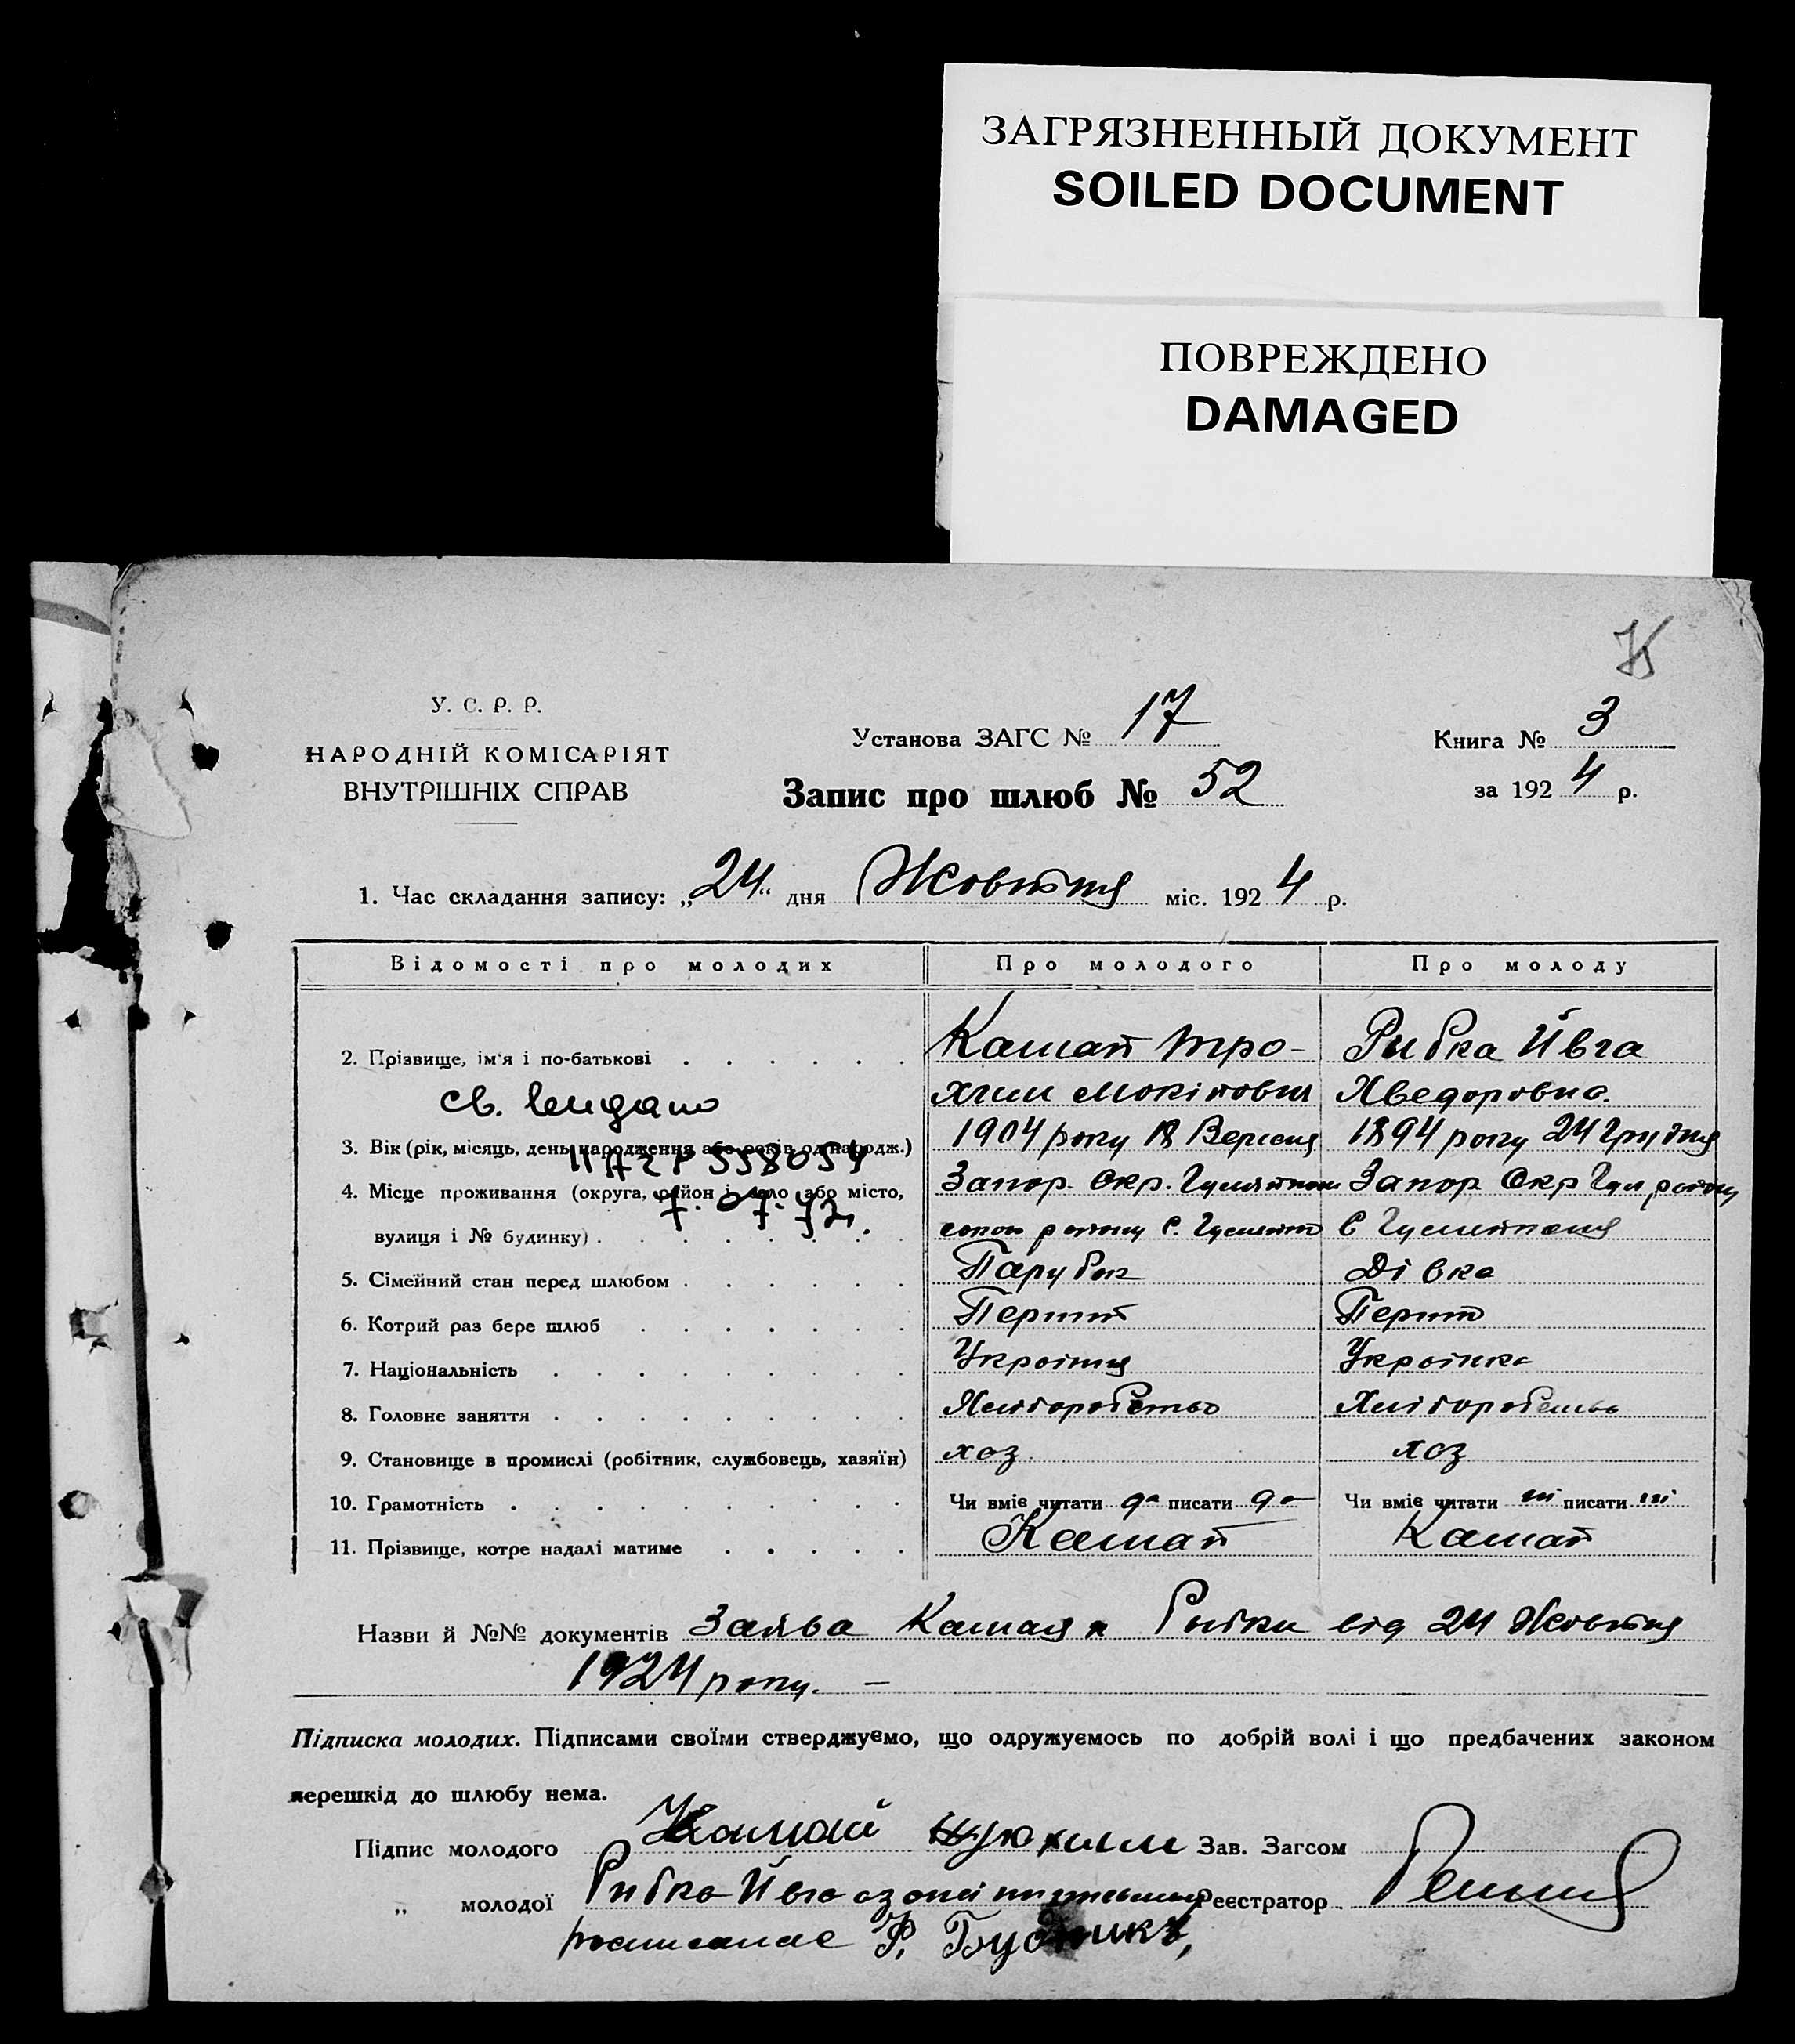 ЗАГРЯЗНЕННЫЙ ДОКУМЕНТ
SOILED DOCUMENT
ПОВРЕЖДЕНО
DAMAGED
У. С. Р. Р.
НАРОДНІЙ КОМІСАРІЯТ
ВНУТРІШНІХ СПРАВ
Установа ЗАГС № 17
Книга № 3
Запис про шлюб № 52
за 1924 р.
1. Час складання запису: „24“ дня Жовтня міс. 1924 р.
Відомості про молодих Про молодого Про молоду
2. Прізвище, ім'я і по-батькові Кашай Тро- Рибка Ивга
св. видано хим Хведоровна.
3. Вік (рік, місяць, день народження або років од народж.) 1904 року 18 Вересня 1894 року 24 Грудня
II АЗР 558054
4. Місце проживання (округа, район і село або місто, Запор. Окр. Запор. Окр Гул району
7.07.72.
вулиця і № будинку) району с.
5. Сімейний стан перед шлюбом Парубок Дівка
6. Котрий раз бере шлюб Перший Перший
7. Національність Українка
8. Головне заняття Хліборобство Хліборобство
9. Становище в промислі (робітник, службовець, хазяїн) хоз. хоз
10. Грамотність Чи вміє читати да писати да Чи вміє читати ні писати ні
11. Прізвище, котре надалі матиме Кашай Кашай
Назви й №№ документів Заява Кашая и Рибки від 24 Жовтня
1924 року. —
Підписка молодих. Підписами своїми стверджуємо, що одружуємось по добрій волі і що предбачених законом
перешкід до шлюбу нема.
Підпис молодого Кашай Зав. Загсом
„ молодої Рибка Ивга Реєстратор
Будник